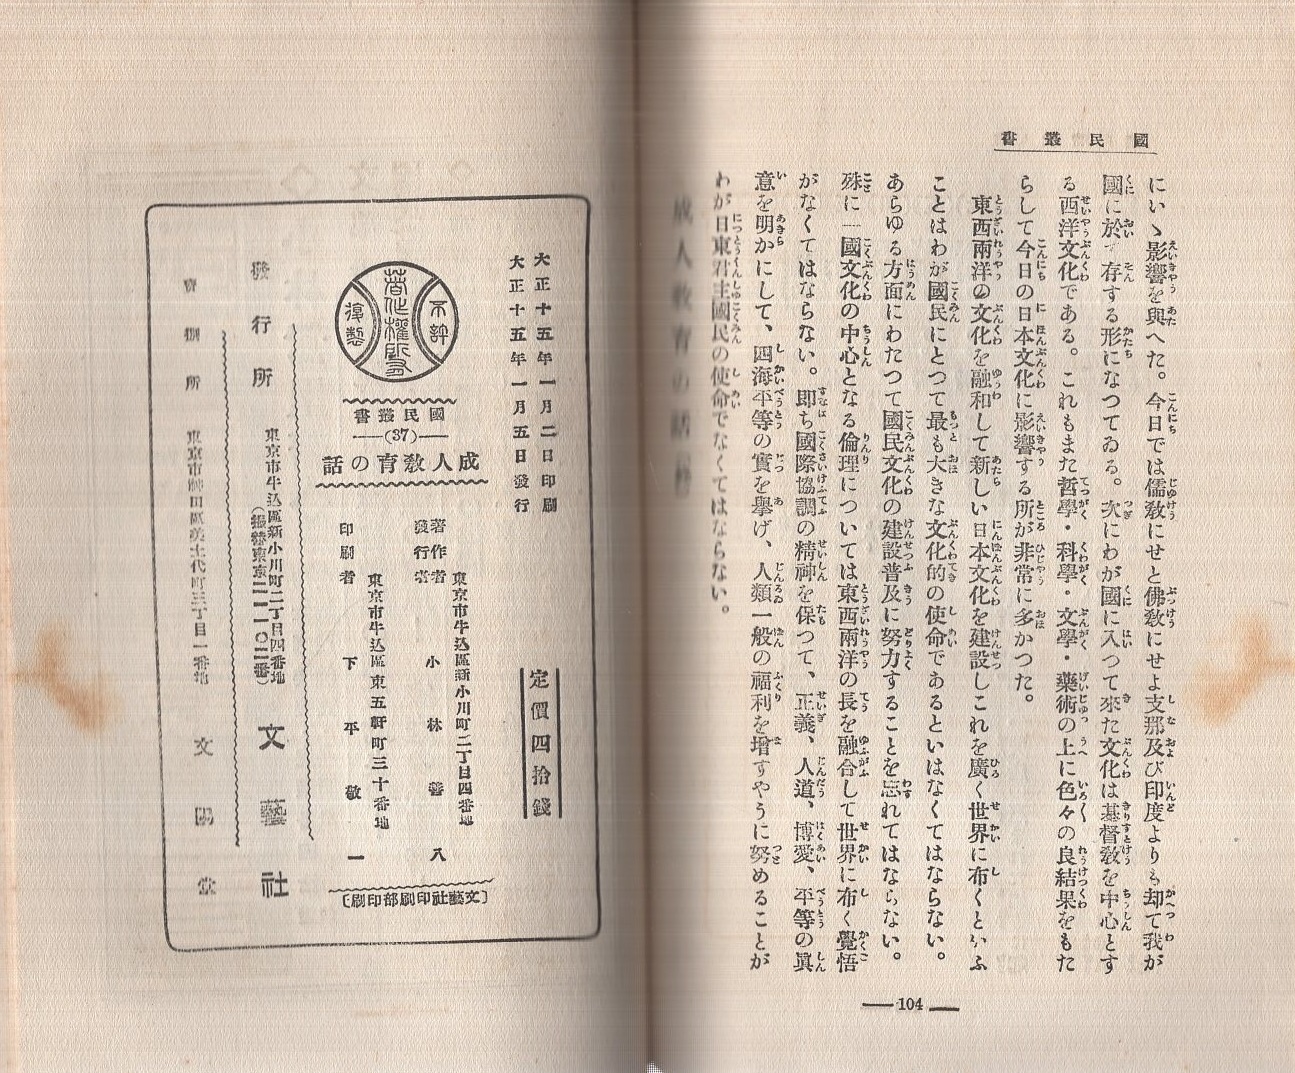 國民叢書
にいゝ影響を與へた。今日では儒敎にせと佛敎にせよ支那及び印度よりも却て我が
國に於て存する形になつてゐる。次にわが國に入つて來た文化は基督敎を中心とす
る西洋文化である。これもまた哲學・科學・文學・藥術の上に色々の良結果をもた
らして今日の日本文化に影響する所が非常に多かつた。
東西兩洋の文化を融和して新しい日本文化を建設しこれを廣く世界に布くといふ
ことはわが國民にとつて最も大きな文化的の使命であるといはなくてはならない。
あらゆる方面にわたつて國民文化の建設普及に努力することを忘れてはならない。
殊に一國文化の中心となる倫理については東西兩洋の長を融合して世界に布く覺悟
がなくてはならない。卽ち國際協調の精神を保つて、正義、人道、博愛、平等の眞
意を明かにして、四海平等の實を擧げ、人類一般の福利を增すやうに努めることが
わが日東君主國民の使命でなくてはならない。
成人敎育の話 終
— 104 —
大正十五年一月二日印刷
大正十五年一月五日發行
定價四拾錢
不許
著作權所有
複製
國民叢書
—(37)—
成人敎育の話
著作者
發行者
東京市牛込區新小川町二丁目四番地
小林善八
東京市牛込區東五軒町三十番地
印刷者 下平敬一
〔文藝社印刷部印刷〕
發行所
東京市牛込區新小川町二丁目四番地
(振替東京二一一〇二番)
文藝社
賣捌所
東京市神田區美土代町三丁目一番地
文陽堂